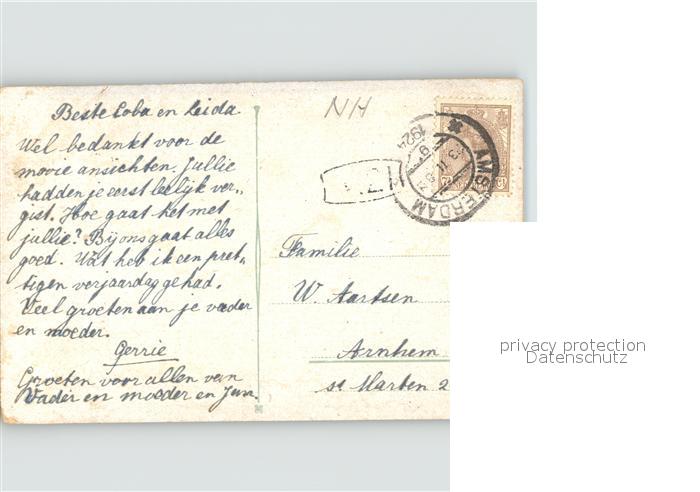 Beste Coba en Leida
Wel bedankt voor de
mooie ansichten. Jullie
hadden je eerst leelijk ver-
gist. Hoe gaat het met
jullie? Bij ons gaat alles
goed. Wat heb ik een pret-
tigen verjaardag gehad.
Veel groeten aan je vader
en moeder.
Gerrie
Groeten voor allen van
Vader en moeder en Jan.
NH
AMSTERDAM
1924
Familie
W. Aartsen
Arnhem
st Marten 2
privacy protection
Datenschutz